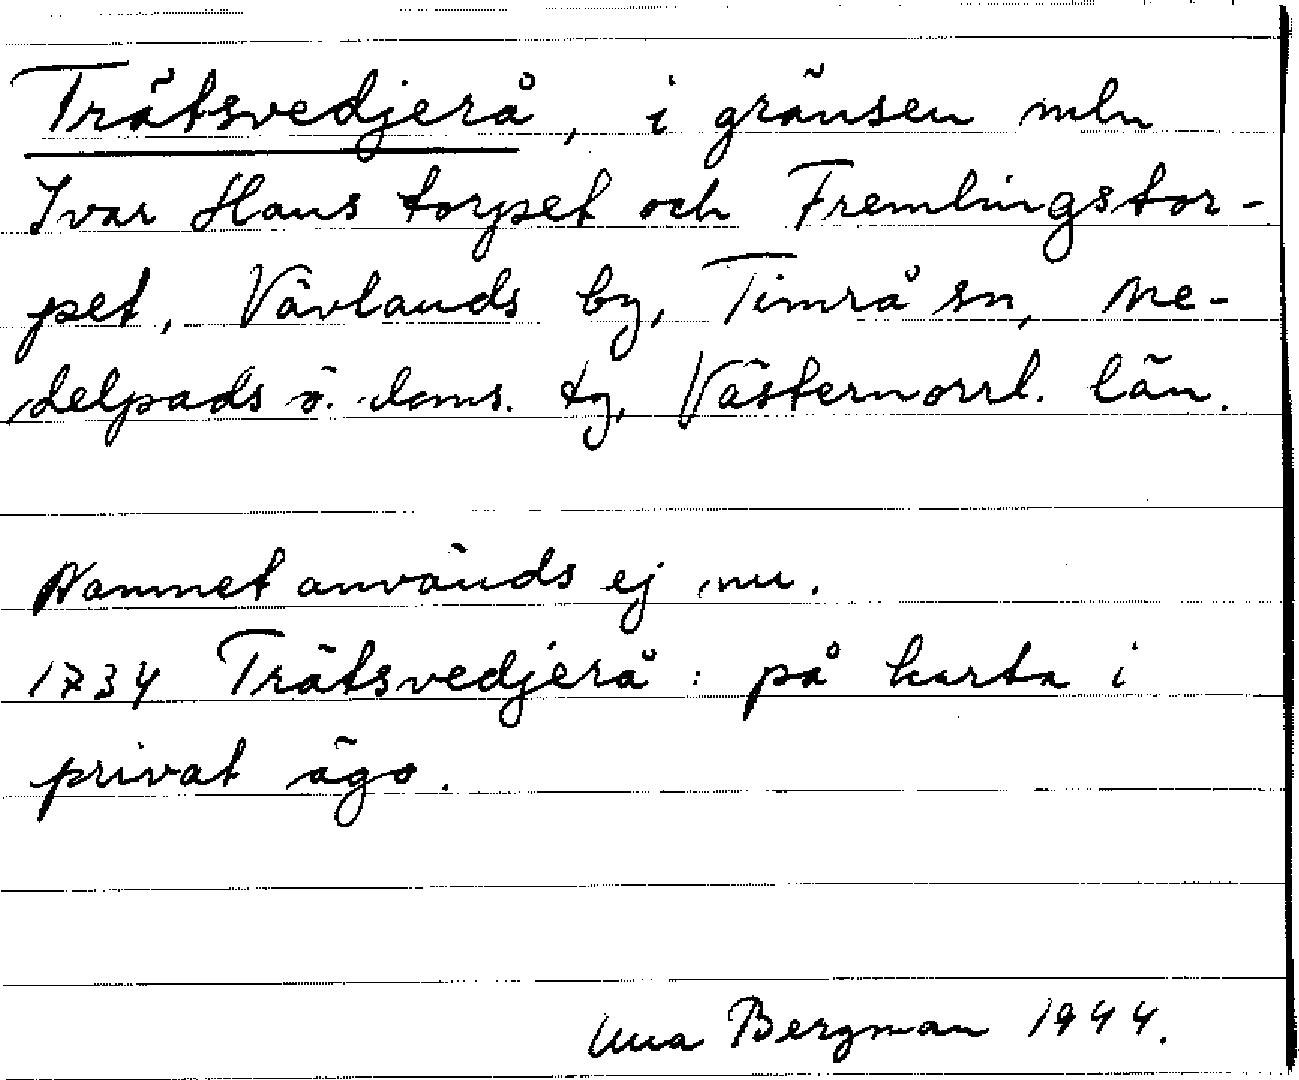 Trätsvedjerå, i gränsen mln
Ivar Hans torpet och Fremlingstor-
pet, Vävlands by, Timrå sn, Me-
delpads ö. doms. tg, Västernorrl. län.
Namnet används ej nu.
1734 Trätsvedjerå : på karta i
privat ägo.
Una Bergman 1944.